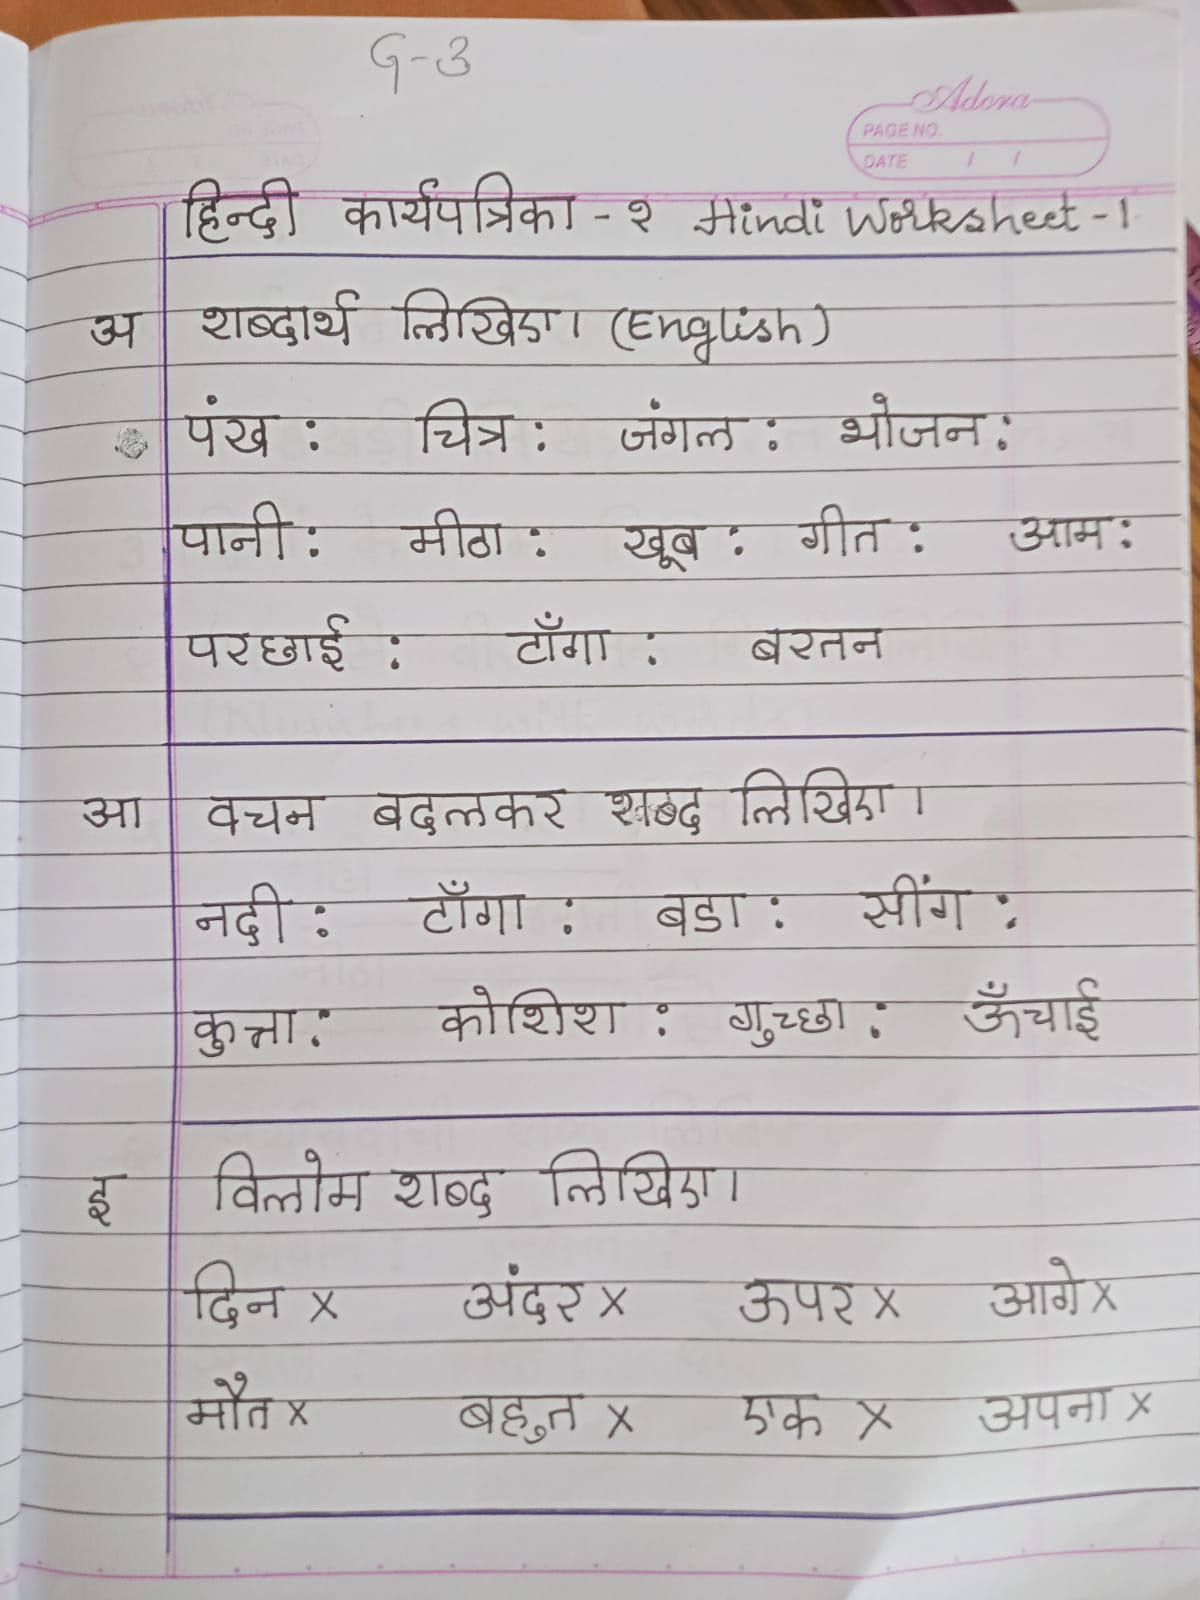 G-3
Adora
PAGE NO.
DATE / /
हिन्दी कार्यपत्रिका - १ Hindi Worksheet - 1
अ शब्दार्थ लिखिए। (English)
पंख : चित्र : जंगल : भोजन :
पानी : मीठा : खूब : गीत : आम :
परछाई : टाँगा : बरतन
आ वचन बदलकर शब्द लिखिए।
नदी : टाँगा : बडा : सींग :
कुत्ता : कोशिश : गुच्छा : ऊँचाई
इ विलोम शब्द लिखिए।
दिन x अंदर x ऊपर x आगे x
मौत x बहुत x एक x अपना x